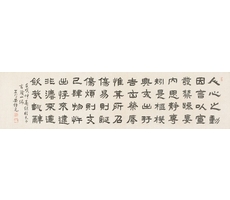 人心之動
因言以宣
發禁躁妄
內斯靜專
矧是樞機
興戎出好
吉凶榮辱
惟其所召
傷易則誕
傷煩則支
己肆物忤
出悖來違
非法不道
欽哉訓辭